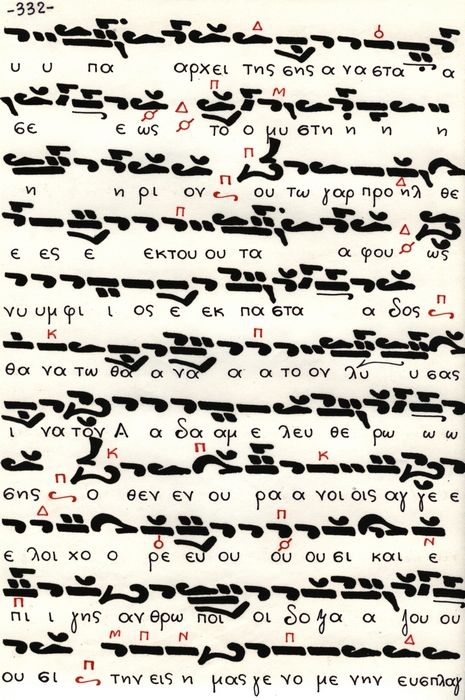 -332-
υ υ πα αρχει της σης α να στα α
σε ε ως το ο μυ στη η η η
η η ρι ον ου τω γαρ προ ηλ θε
ε ες ε εκ του ου τα α φου ως
νυ υμ φι ι ος ε εκ πα στα α δος
θα να τω θα α να α α το ον λυ υ σας
ι να τον Α α δα αμ ε λευ θε ρω ω ω
σης ο θεν εν ου ρα α νοι οις αγ γε ε
ε λοι χο ο ρε ευ ου ου ου σι και ε
πι ι γης αν θρω ποι οι δο ξα α ζου ου
ου σι την εις η μας γε νο με νην ευσπλαγ